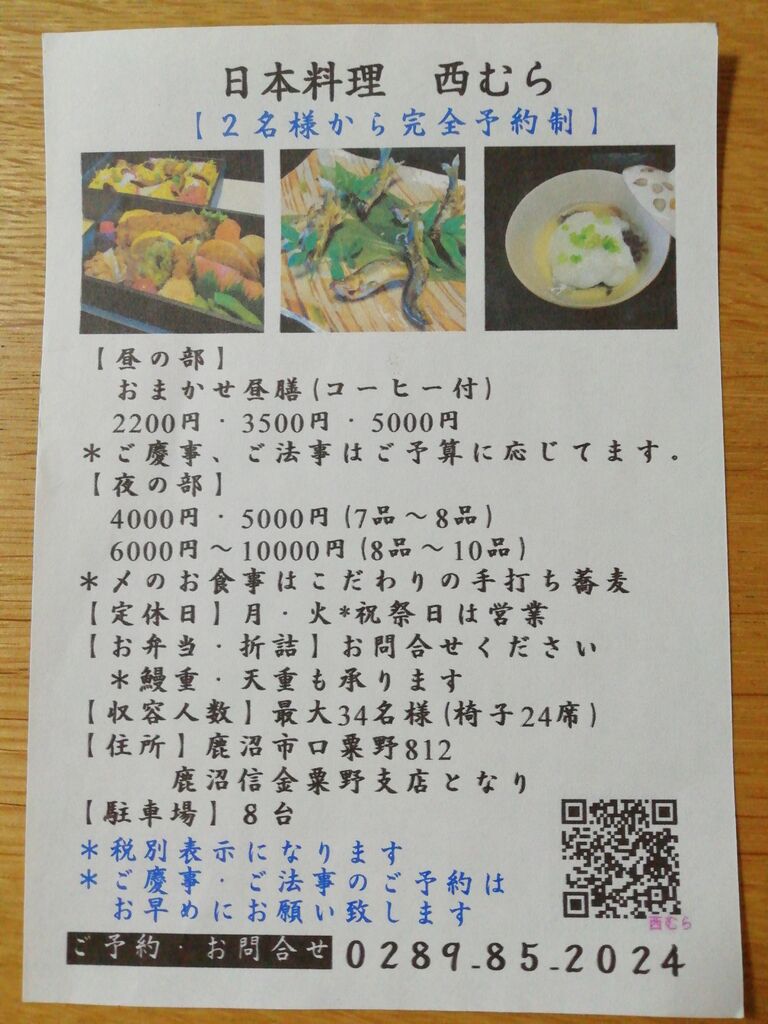 日本料理　西むら
【２名様から完全予約制】
【昼の部】
おまかせ昼膳(コーヒー付)
2200円・3500円・5000円
＊ご慶事、ご法事はご予算に応じてます.
【夜の部】
4000円・5000円(7品～8品)
6000円～10000円(8品～10品)
＊〆のお食事はこだわりの手打ち蕎麦
【定休日】月・火*祝祭日は営業
【お弁当・折詰】お問合せください
＊鰻重・天重も承ります
【収容人数】最大34名様(椅子24席)
【住所】鹿沼市口粟野812
鹿沼信金粟野支店となり
【駐車場】8台
＊税別表示になります
＊ご慶事・ご法事のご予約は
お早めにお願い致します
西むら
ご予約・お問合せ 0289-85-2024